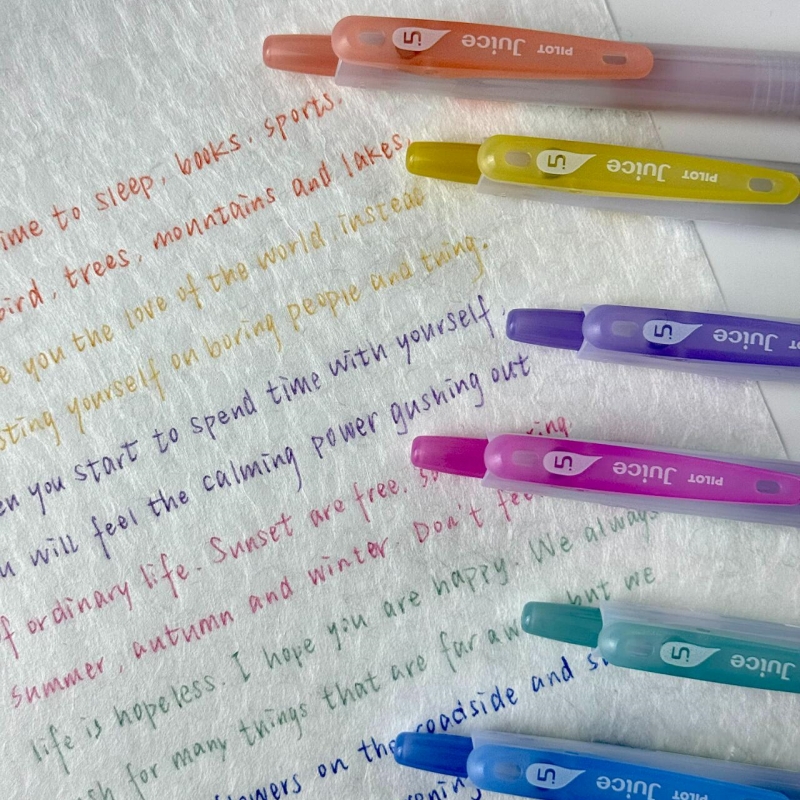 ime to sleep, books, sports.
bird, trees, mountains and lakes,
e you the love of the world instead
sting yourself on boring people and thing.
en you start to spend time with yourself,
u will feel the calming power gushing out
f ordinary life. Sunset are free. s ing
summer, autumn and winter. Don't fee
life is hopeless. I hope you are happy. We always
sh for many things that are far away but we
lowers on the roadside and s
05 Juice PILOT
05 Juice PILOT
05 Juice
05 Juice PILOT
05 Juice
05 Juice PILOT